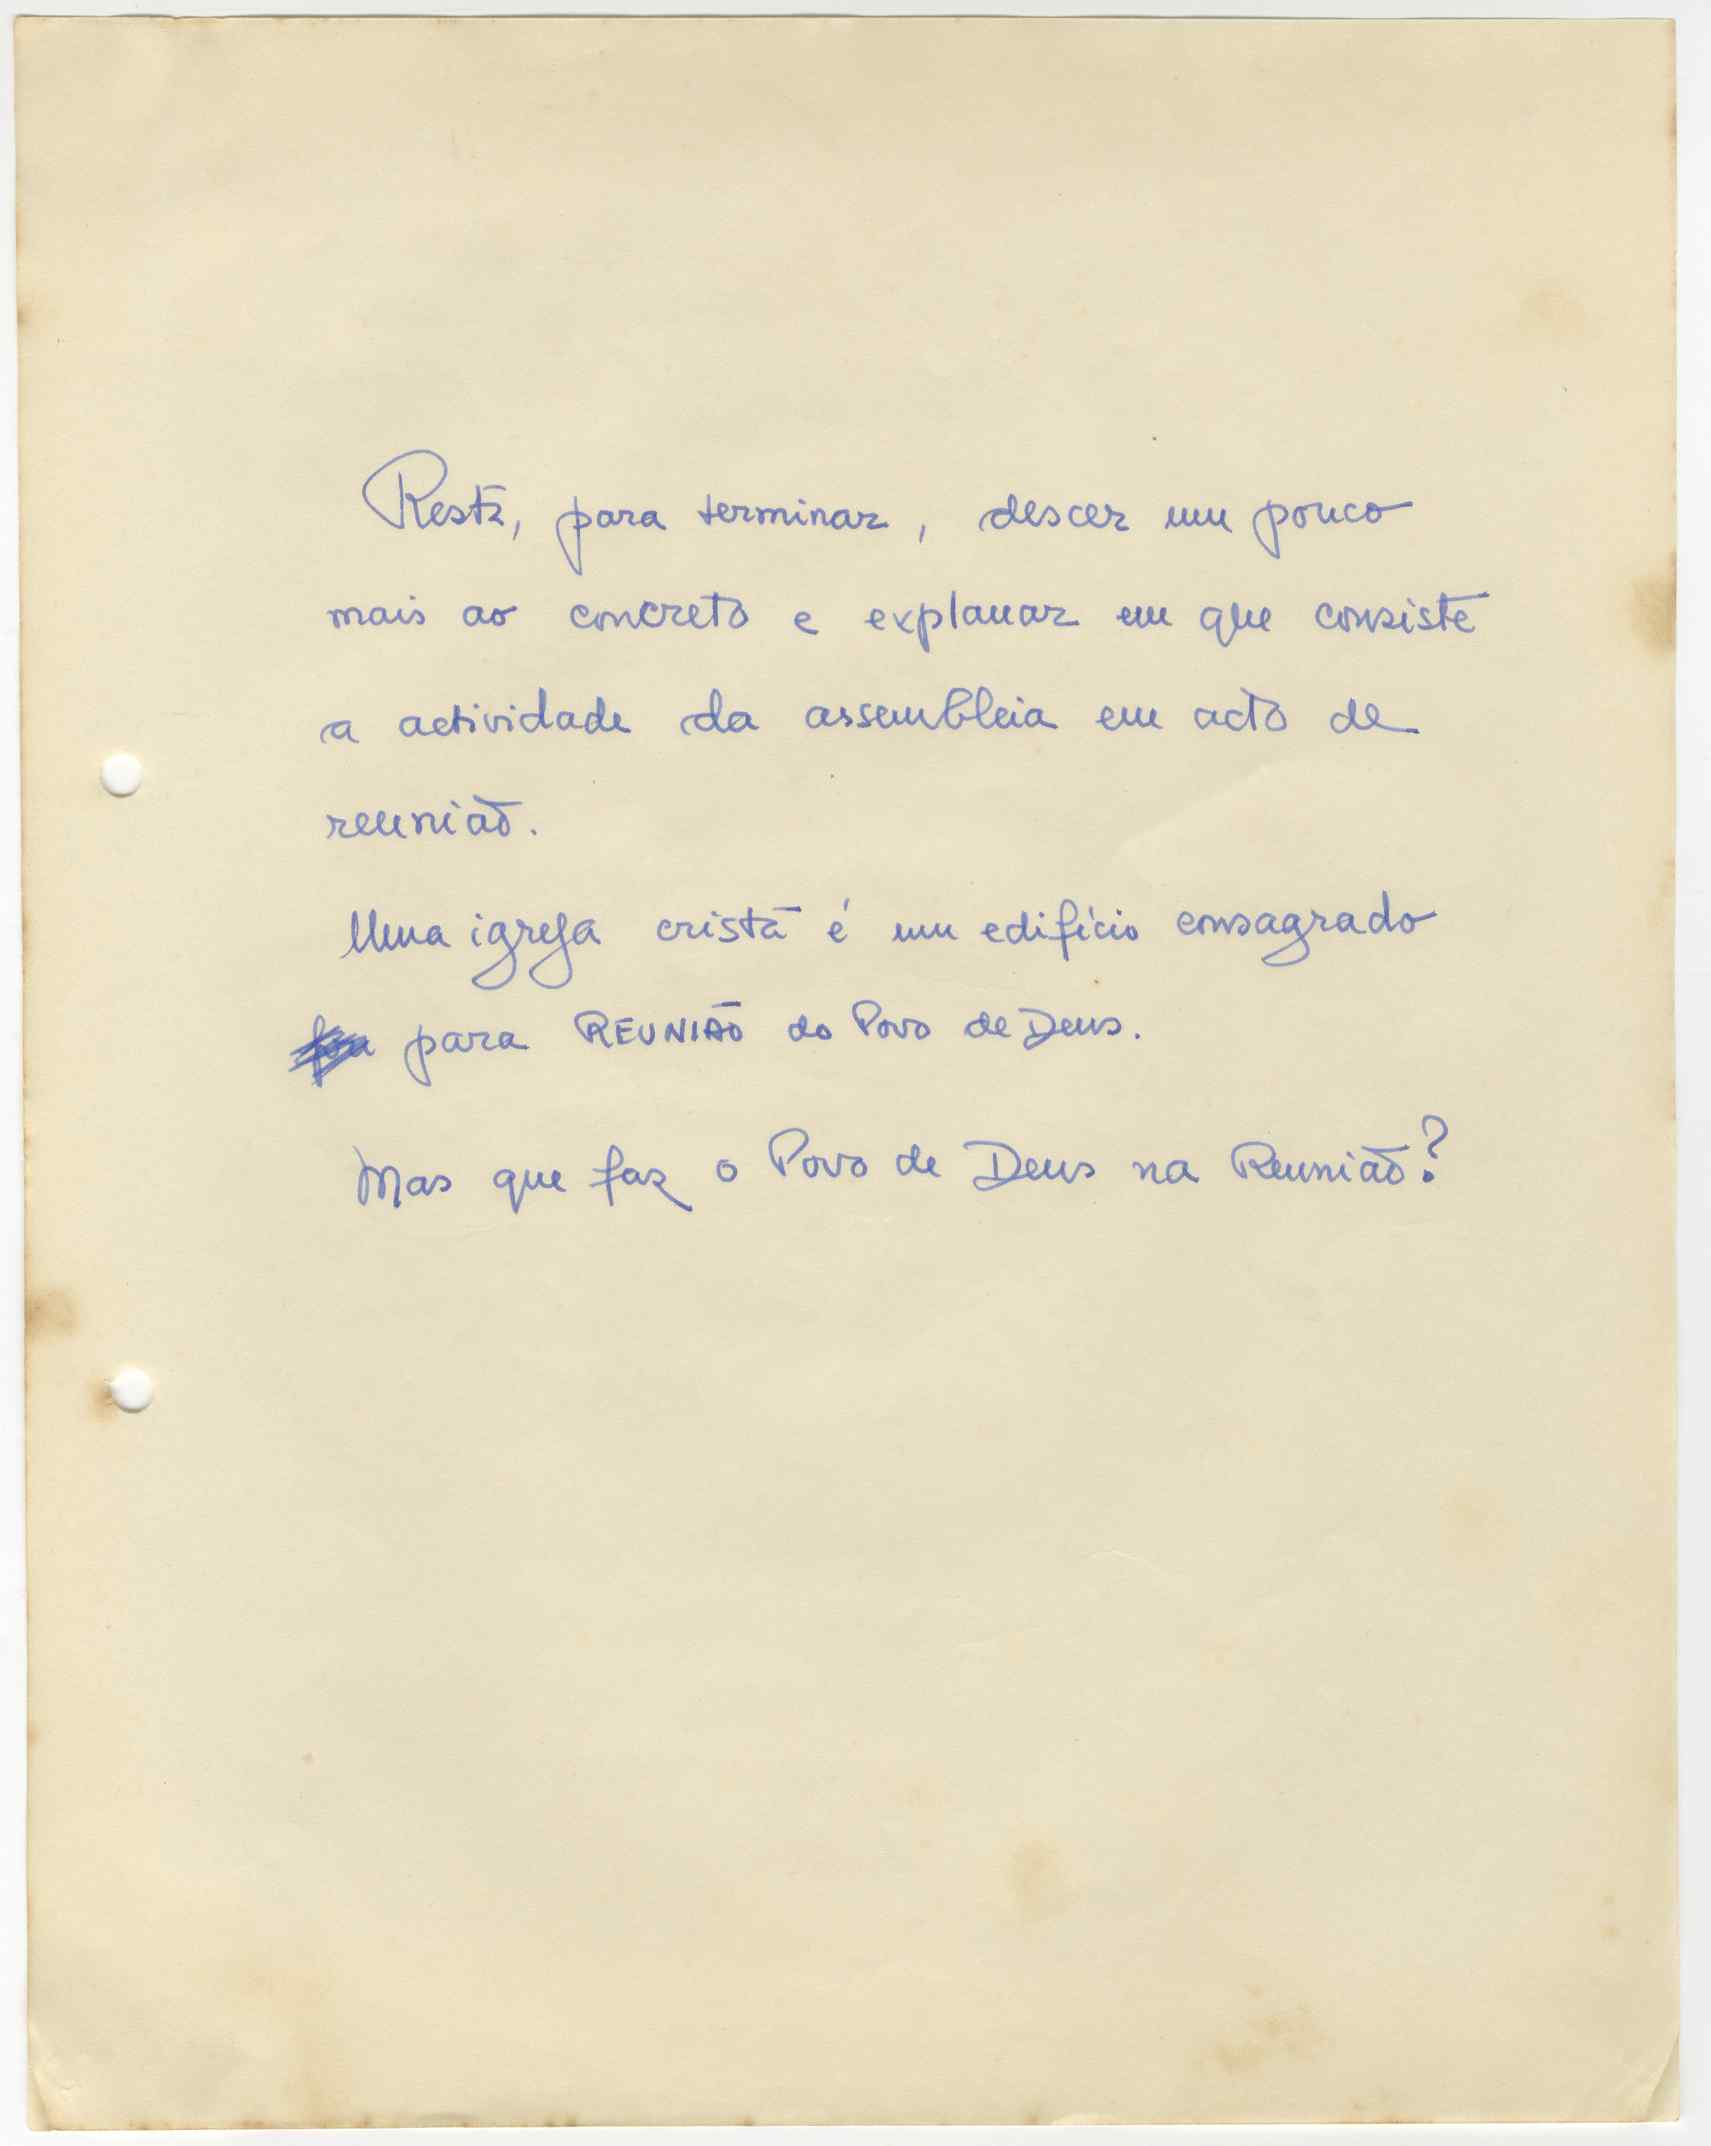 Resta, para terminar, descer um pouco
mais ao concreto e explanar em que consiste
a actividade da assembleia em acto de
reunião.
Uma igreja cristã é um edifício consagrado
para REUNIÃO do Povo de Deus.
Mas que faz o Povo de Deus na Reunião?